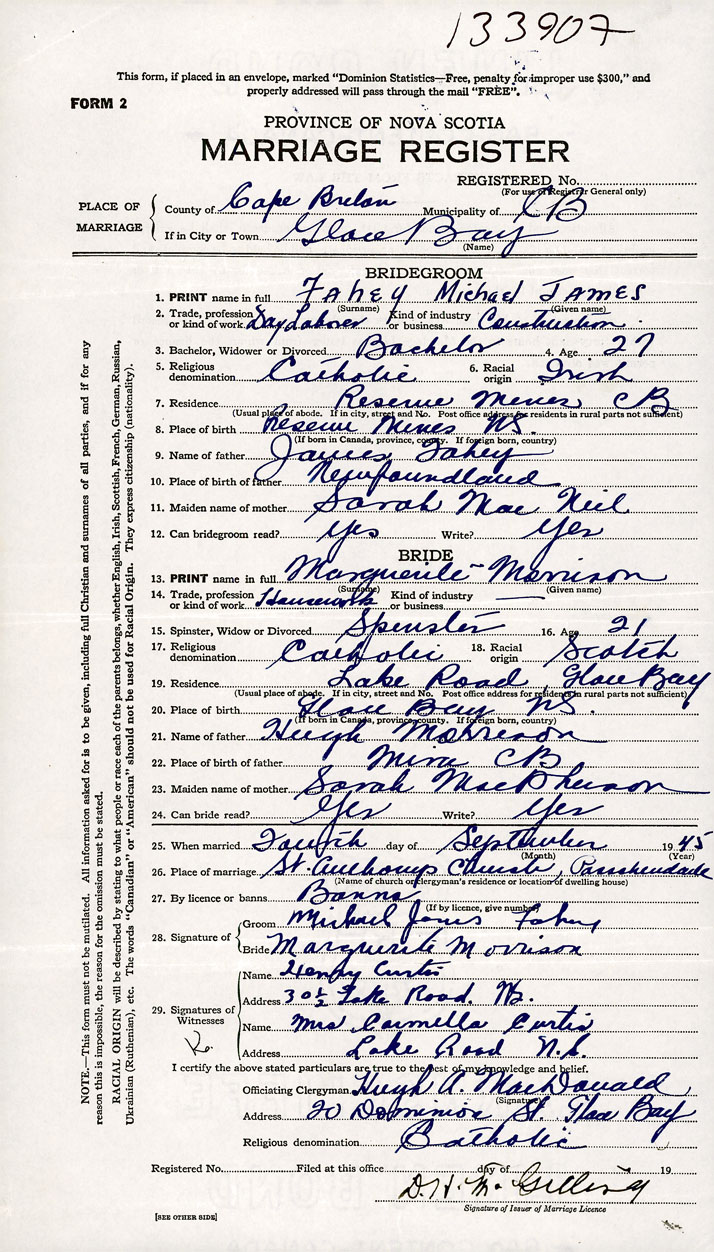 133907
This form, if placed in an envelope, marked "Dominion Statistics—Free, penalty for improper use $300," and
properly addressed will pass through the mail "FREE".
FORM 2
PROVINCE OF NOVA SCOTIA
MARRIAGE REGISTER
REGISTERED No.
(For use of Registrar General only)
PLACE OF MARRIAGE
County of Cape Breton Municipality of CB
If in City or Town Glace Bay
(Name)
BRIDEGROOM
1. PRINT name in full Fahey Michael James
(Surname) (Given name)
2. Trade, profession or kind of work Day Laborer Kind of industry or business Construction
3. Bachelor, Widower or Divorced Bachelor 4. Age 27
5. Religious denomination Catholic 6. Racial origin Irish
7. Residence Reserve Mines CB
(Usual place of abode. If in city, street and No. Post office address for residents in rural parts not sufficient)
8. Place of birth Reserve Mines NS.
(If born in Canada, province, county. If foreign born, country)
9. Name of father James Fahey
10. Place of birth of father Newfoundland
11. Maiden name of mother Sarah Mac Neil
12. Can bridegroom read? Yes Write? Yes
BRIDE
13. PRINT name in full Marguerite Morrison
(Surname) (Given name)
14. Trade, profession or kind of work Housework Kind of industry or business —
15. Spinster, Widow or Divorced Spinster 16. Age 21
17. Religious denomination Catholic 18. Racial origin Scotch
19. Residence Lake Road, Glace Bay
(Usual place of abode. If in city, street and No. Post office address for residents in rural parts not sufficient)
20. Place of birth Glace Bay NS.
(If born in Canada, province, county. If foreign born, country)
21. Name of father Hugh Morrison
22. Place of birth of father Mira CB
23. Maiden name of mother Sarah MacPherson
24. Can bride read? Yes Write? Yes
25. When married Fourth day of September 1945
(Month) (Year)
26. Place of marriage St. Anthonys Church, Passchendale
(Name of church or clergyman's residence or location of dwelling house)
27. By licence or banns Banns
(If by licence, give number)
28. Signature of
Groom Michael James Fahey
Bride Marguerite Morrison
29. Signatures of Witnesses
Name Henry Curtis
Address 30½ Lake Road. NS.
Name Mrs Carmella Curtis
Address Lake Road N.S.
I certify the above stated particulars are true to the best of my knowledge and belief.
Officiating Clergyman Hugh A. MacDonald
(Signature)
Address 20 Dominion St. Glace Bay
Religious denomination Catholic
Registered No. Filed at this office day of 19
D.H. Mc
Signature of Issuer of Marriage Licence
[SEE OTHER SIDE]
NOTE.—This form must not be mutilated. All information asked for is to be given, including full Christian and surnames of all parties, and if for any
reason this is impossible, the reason for the omission must be stated.
RACIAL ORIGIN will be described by stating to what people or race each of the parents belongs, whether English, Irish, Scottish, French, German, Russian,
Ukrainian (Ruthenian), etc. The words "Canadian" or "American" should not be used for Racial Origin. They express citizenship (nationality).